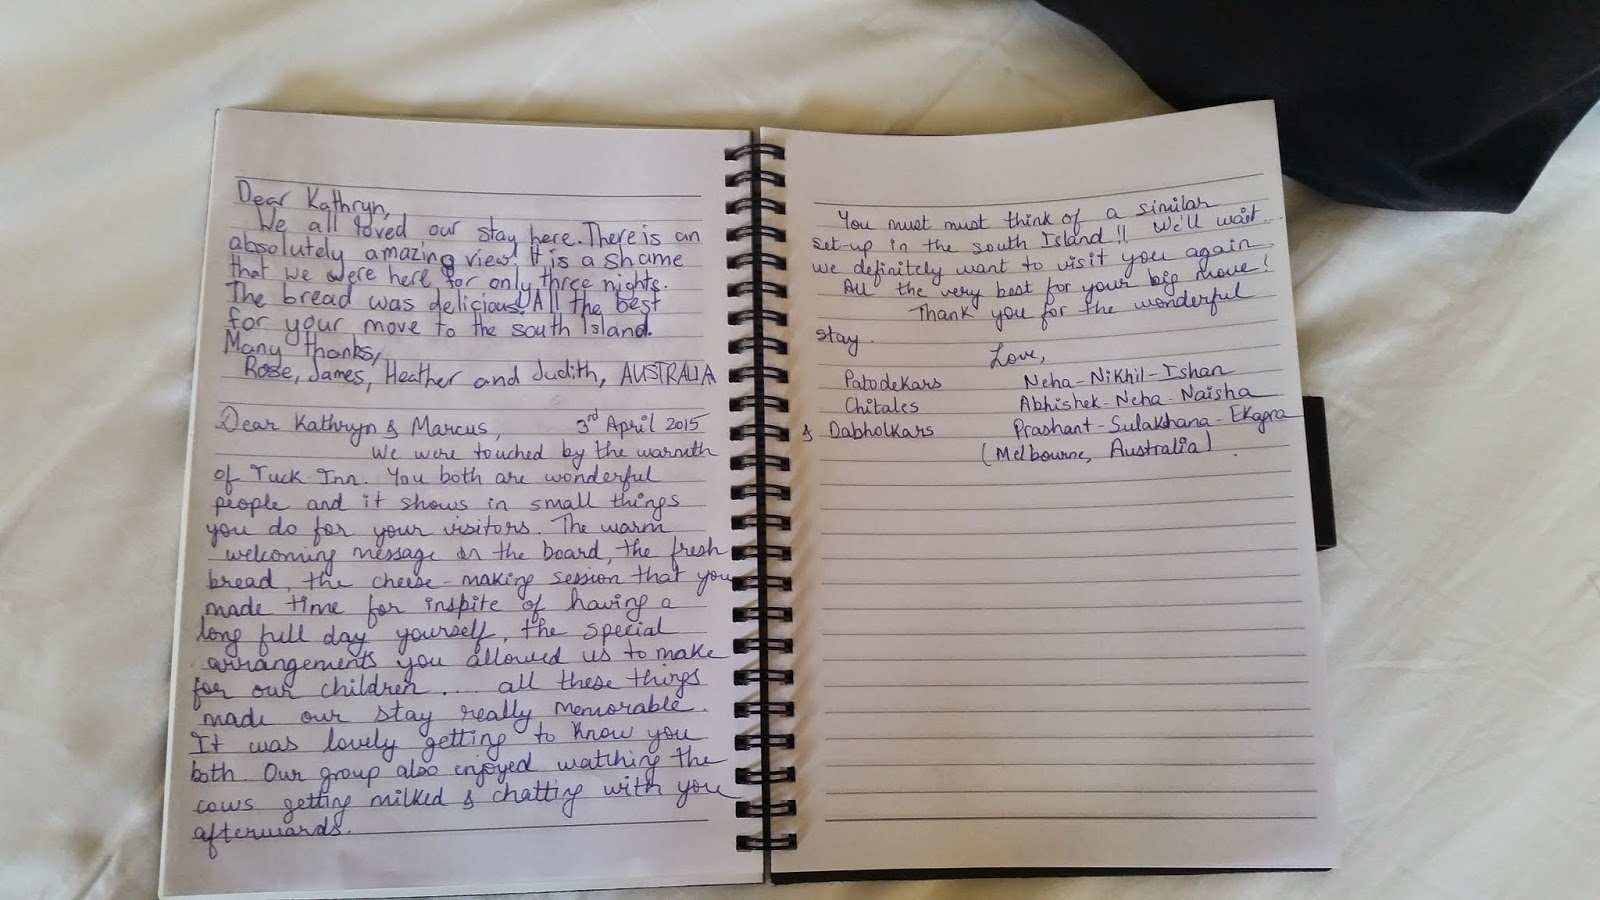 Dear Kathryn,
We all loved our stay here. There is an
absolutely amazing view! It is a shame
that we were here for only three nights.
The bread was delicious! All the best
for your move to the south Island.
Many thanks,
Rose, James, Heather and Judith, AUSTRALIA
Dear Kathryn & Marcus, 3rd April 2015
We were touched by the warmth
of Tuck Inn. You both are wonderful
people and it shows in small things
you do for your visitors. The warm
welcoming message on the board, the fresh
bread, the cheese-making session that you
made time for inspite of having a
long full day yourself, the special
arrangements you allowed us to make
for our children .... all these things
made our stay really memorable.
It was lovely getting to know you
both. Our group also enjoyed watching the
cows getting milked & chatting with you
afterwards.
You must must think of a similar
set-up in the south Island!! We'll wait...
we definitely want to visit you again
All the very best for your big move!
Thank you for the wonderful
stay.
Love,
Patodekars Neha-Nikhil-Ishan
Chitales Abhishek-Neha-Naisha
& Dabholkars Prashant-Sulakshana-Ekagra
(Melbourne, Australia).